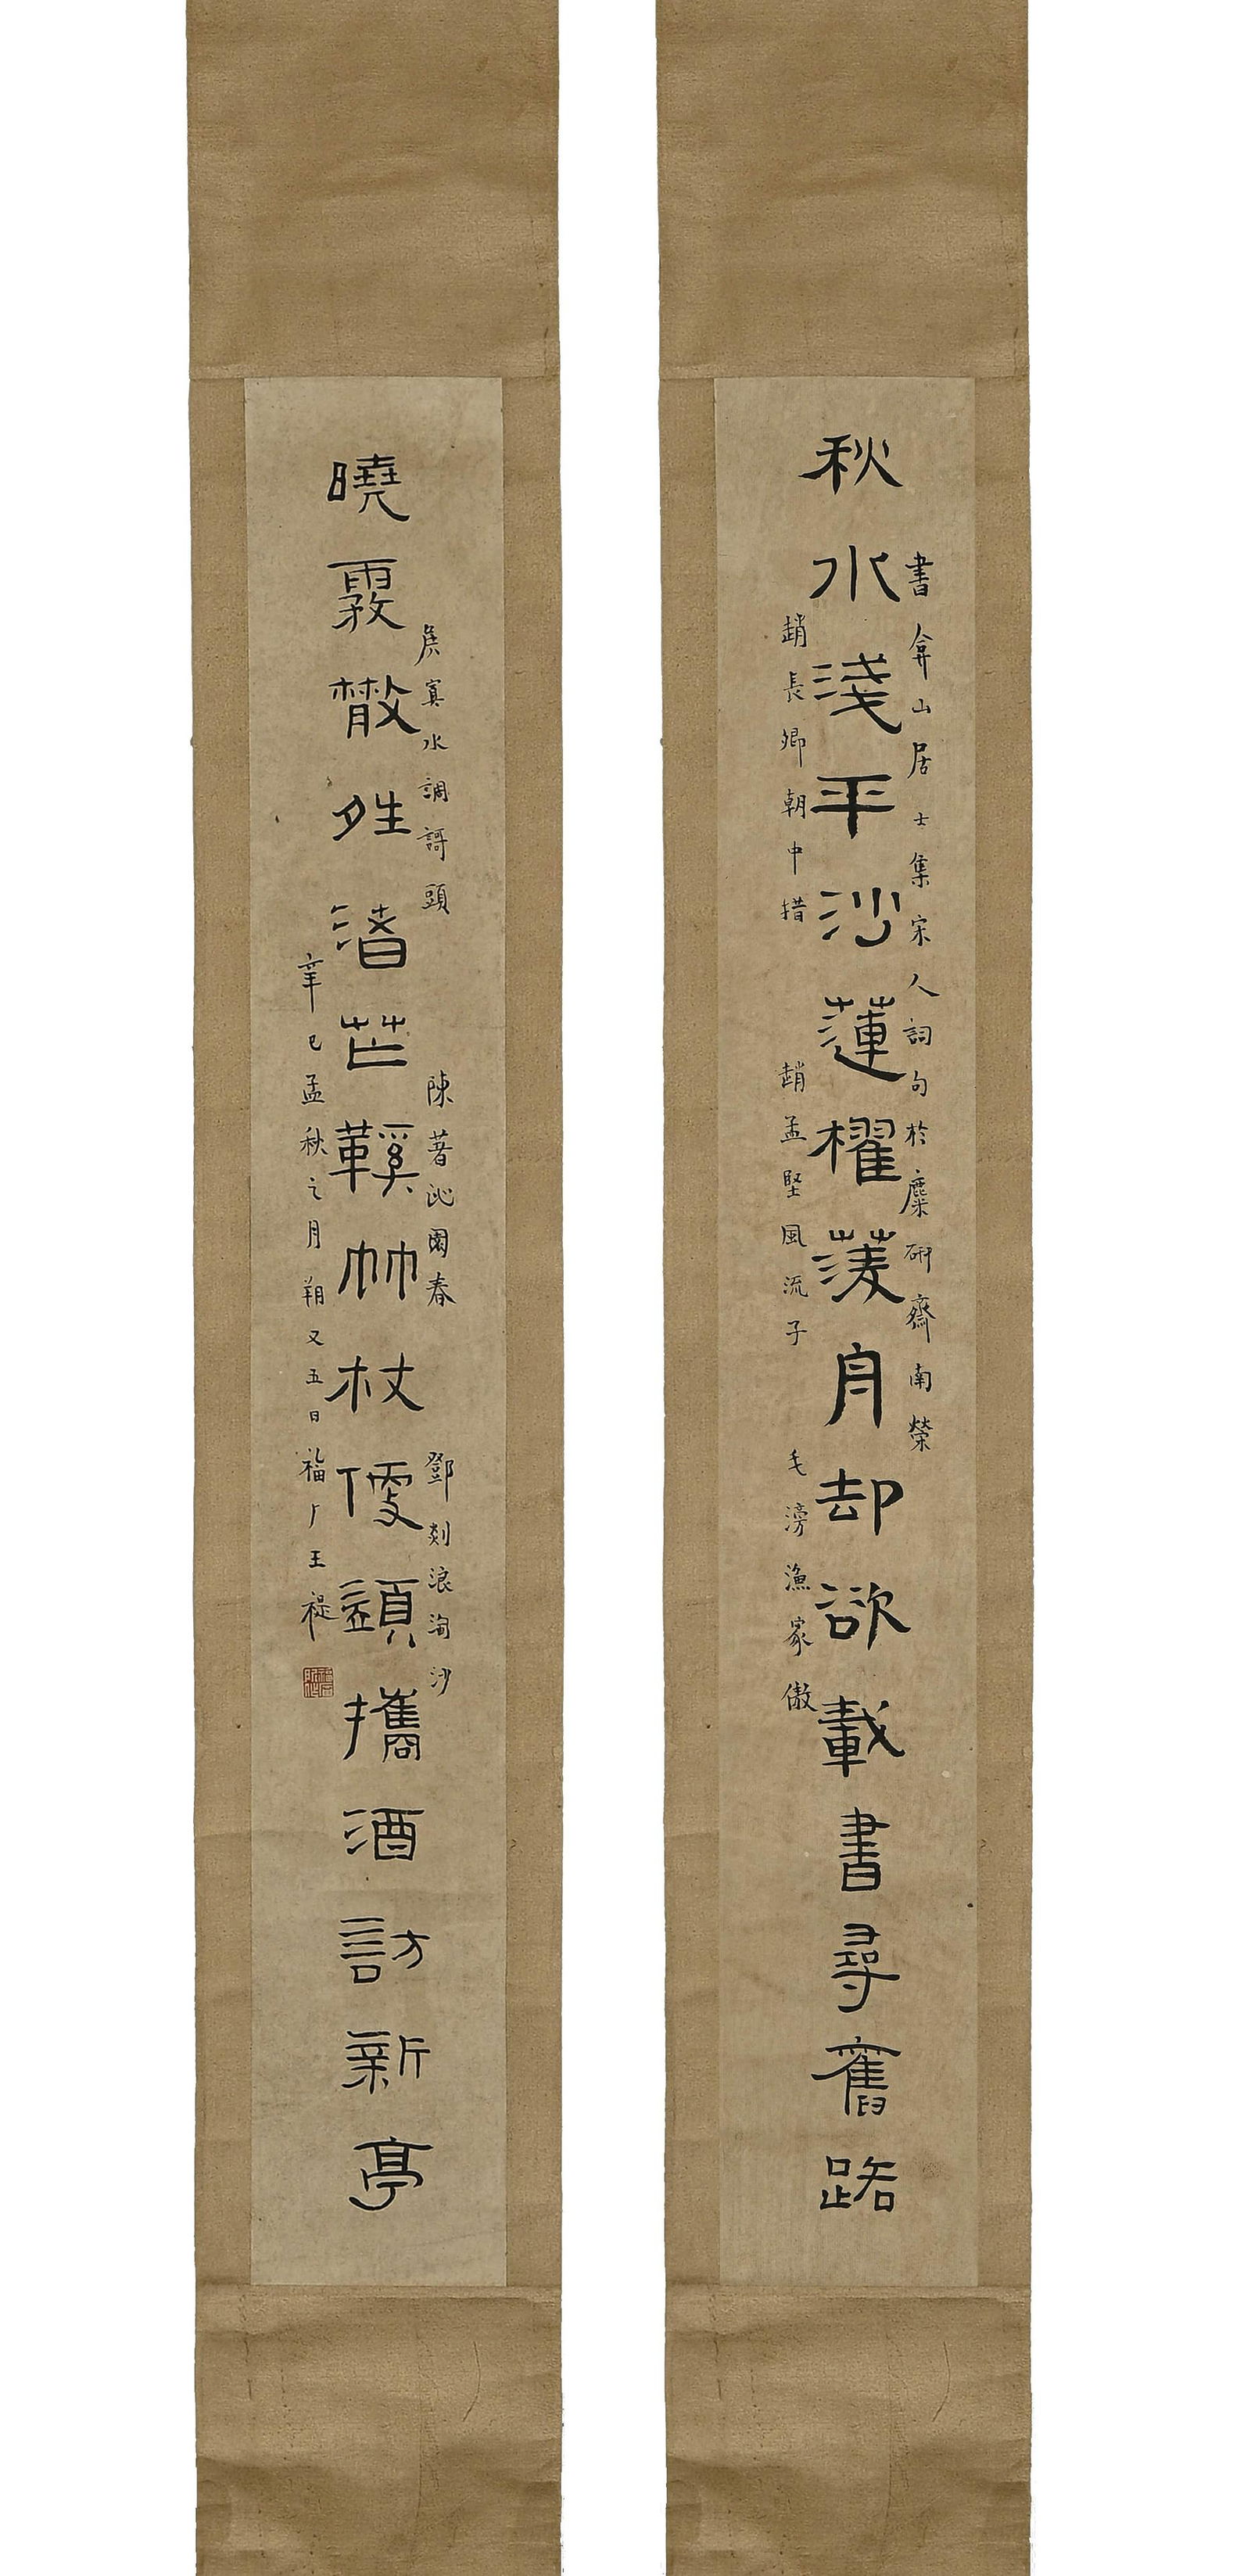 書弇山居士集宋人詞句於麋研齋南榮
秋水淺平沙蓮櫂蔆舟却欲載書尋舊路
趙長卿朝中措
趙孟堅風流子
毛滂漁家傲
矦寘水調謌頭
陳著沁園春
鄧剡浪淘沙
曉霚散夝渚芒鞵竹杖便須攜酒訪新亭
辛巳孟秋之月朔又五日福厂王禔